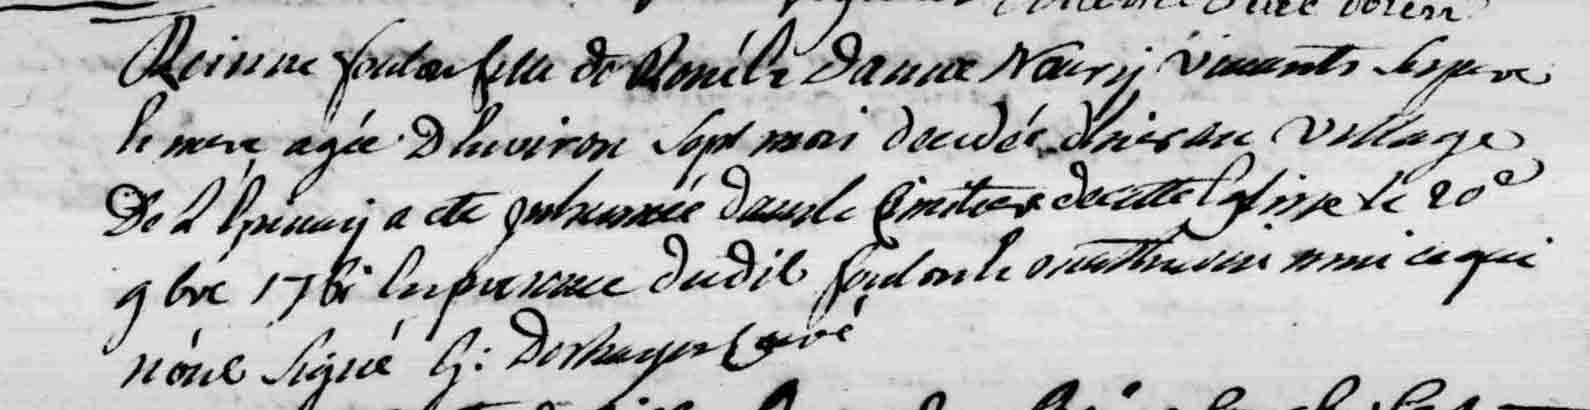 Reinne foulon fille de René & D'anne Nourry vivants ses pere
& mere agée D'Environ Sept mois decedée d'hier au village
De L'Epinay a ete inhumée dans le Cimitiere de cette Eglise le 20e
9bre 1761 En presence dudit foulon &
n'ont Signé G: Deshayes Curé